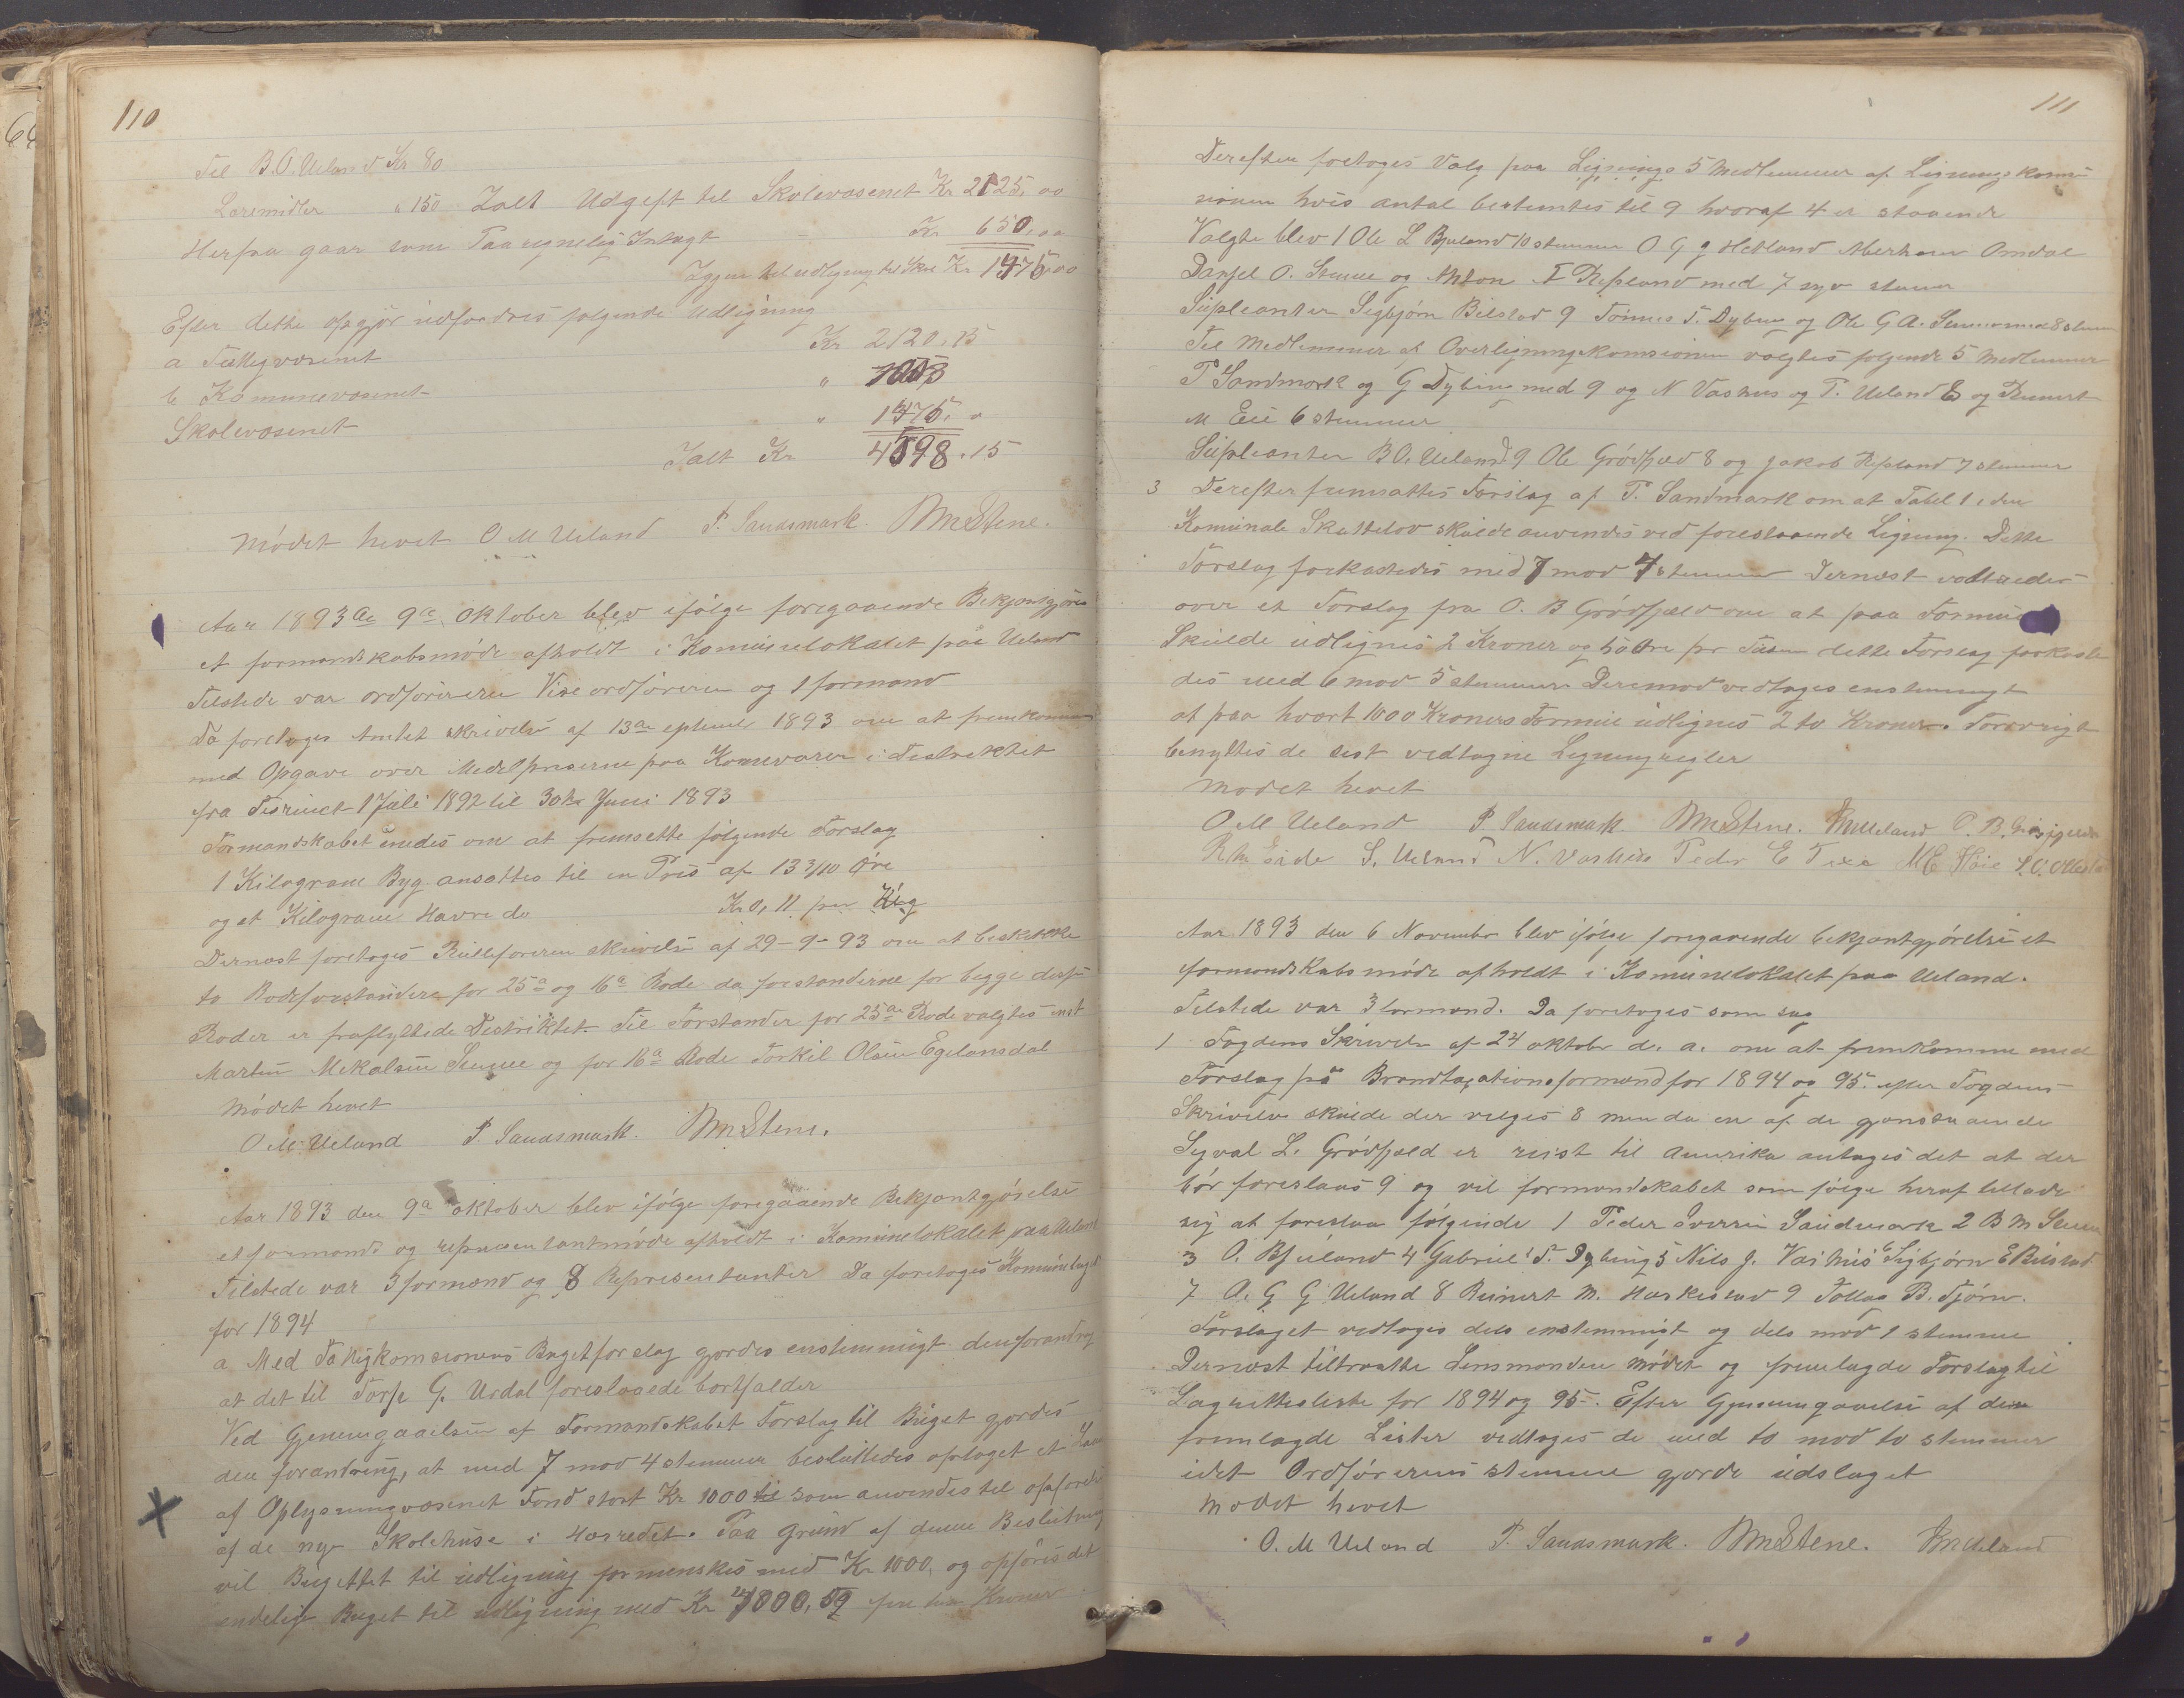 110
Til B. O. Ueland Kr 80
Læremidler " 150 Ialt Udgift til Skolevæsenet Kr 2125,00
Herfra gaar som Paaregnelig Intægt - Kr 650,00
Igjen til udligning til Skol Kr 1475,00
Efter dette opgjør udfordres følgende Udligning
a Fattigvæsenet Kr 2120,15
b Komunevæsenet "
Skolevæsenet " 1475,
Ialt Kr 4598.15
Mødet hevet O M Ueland P. Sandsmark. BMStene.
Aar 1893 de 9de Oktober blev ifølge foregaaende Bekjentgjørelse
et formandskabsmøde afholdt i Komunelokalet paa Ueland
Tilstede var ordføreren Viseordføreren og 1 formand
Da foretoges Amtets skrivelse af 13de september 1893 om at fremkomme
med Opgave over Medelpriserne paa Kornvarer i Distriktet
fra Tisrumet 1 Juli 1892 til 30te Juni 1893
Formandskabet enedes om at fremsette følgende Forslag
1 Kilogram Byg ansattes til en Pris af 13 3/10 Øre
og et Kilogram Havre do Kr 0,11 per Kilg
Dernæst foretoges Rulleførerens skrivelse af 29-9-93 om at beskikke
to Rodeforstandere for 25de og 16de Rode da forstanderne for begge disse
Roder er fraflyttede Distriktet. Til Forstander for 25de Rode valgtes enst
Martin Mekalsen Stene og for 16de Rode Torkil Olsen Egelandsdal
Mødet hevet
O M Ueland P. Sandsmark. BMStene.
Aar 1893 den 9de oktober blev ifølge foregaaende Bekjentgjørelse
et formands og representantmøde afholdt i Komunelokalet paa Ueland
Tilstede var 3 formænd og 8 Representanter Da foretoges Komunebuget
for 1894
a Med Fattigkomsionens Bugetforslag gjordes enstemmigt den forandring
at det til Torje G. Urdal foreslaaede bortfalder
Ved Gjennemgaaelsen af Formandskabet Forslag til Buget gjordes
den forandring, at med 7 mod 4 stemmer besluttedes optaget et Laan
af Oplysningvæsenet Fond stort Kr 1000 som anvendes til opførelse
af de nye Skolehuse i Herredet. Paa Grund af denne Beslutning
vil Bugettet til udligning formenskes med Kr 1000, og opføres det
endelige Buget til udligning med Kr
111
Derefter foretoges Valg paa 5 Medlemmer af Ligningskomi
sionen hvis antal bestemtes til 9 hvoraf 4 er staaende
Valgte blev 1 Ole L Bjuland 10 stemmer O G g Hetland Aberham Omdal
Daniel O. Stene og Anton T Repland med 7 syv stemer
Supleanter Segbjørn Bilstad 9 Tønnes T. Dybing og Ole G A. Stene med 8 stemer
Til Medlemmer af Overligningskomsionen valgtes følgende 5 Medlemmer
P Sandsmark og G Dybing med 9 og N Vashus og T. Ueland 8 og Reinert
M Eie 6 stemmer
Supleanter B O. Ueland 9 Ole Grødfjæld 8 og Jakob Repland 7 stemmer
3 Derefter fremsattes Forslag af P. Sandsmark om at Tabel 1 i den
Komunale Skattelov skulde anvendes ved forestaaende Ligning. Dette
Forslag forkastedes med 7 mod 4 stemmer Dernæst voteredes
over et Forslag fra O. B Grødfjæld om at paa Formue
Skulde udlignes 2 Kroner og 50 Øre pr Tusen dette Forslag forkaste
des med 6 mod 5 stemmer. Derimod vedtoges enstemmigt
at paa hvert 1000 Kroners Formue udlignes 2 to Kroner. Forøvrigt
benyttes de sist vedtagne Ligningregler
Mødet hevet
O M Ueland P. Sandsmark. BMStene. O. B. Grødfjeld
S. Ueland N. Vashus Peder E
Aar 1893 den 6 November blev ifølge foregaaende bekjentgjørelse et
formandskabsmøde afholdt i Komunelokalet paa Ueland.
Tilstede var 3 formænd. Da foretoges som sag
1 Fogdens Skrivelse af 24 oktober d. a. om at fremkomme med
Forslag på Brandtaxationsformænd for 1894 og 95. efter Fogdens
Skrivelse skulde der velges 8 men da en af de gjenstaaende
Sigval L. Grødfjeld er reist til Amerika antages det at der
bør foreslaas 9 og vil formandskabet som følge heraf tillade
sig at foreslaa følgende 1 Peder Sverrin Sandsmark 2 B M Stene
3 O. Bjuland 4 Gabriel T. Dybing 5 Nils J. Vashus 6 Sigbjørn E Bilstad
7 A. G G Ueland 8 Reinert M. Haskestad 9 Tollag B. Tjørn.
Forslaget vedtoges dels enstemmigt og dels mod 1 stemme
Dernæst tiltraatte Lensmanden Mødet og fremlagde Forslag til
Lagretteliste for 1894 og 95. Efter Gjennemgaaelse af den
fremlagde Lister vedtoges de med to mod to stemmer
idet Ordførerens stemme gjorde udslaget
Mødet hevet
O. M Ueland P. Sandsmark. BMStene.